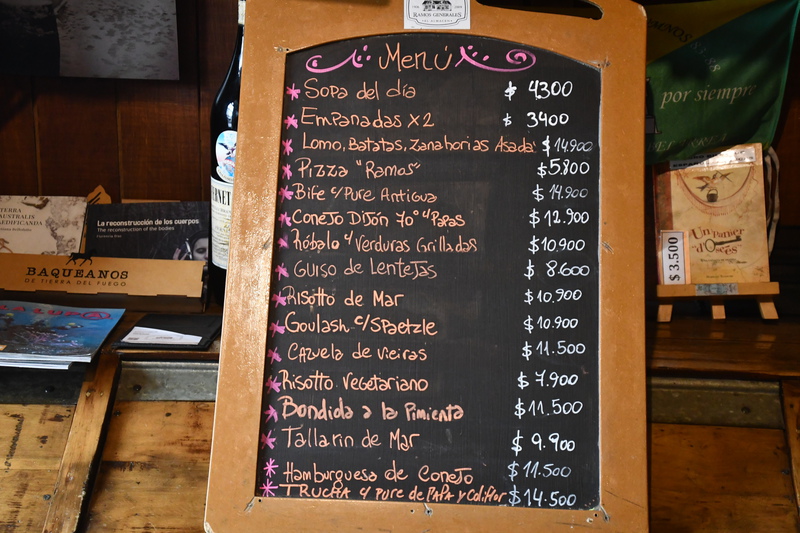 RAMOS GENERALES
Menú
Sopa del día $ 4300
Empanadas x 2 $ 3400
Lomo, Batatas, Zanahorias Asada $ 14.900
Pizza "Ramos" $ 5.800
Bife c/ Pure Antigua $ 14.900
Conejo Dijón 70° c/ Papas $ 12.900
Róbalo c/ Verduras Grilladas $ 10.900
Guiso de Lentejas $ 8.600
Risotto de Mar $ 10.900
Goulash c/ Spaetzle $ 10.900
Cazuela de Vieiras $ 11.500
Risotto Vegetariano $ 7.900
Bondida a la Pimienta $ 11.500
Tallarin de Mar $ 9.900
Hamburguesa de Conejo $ 11.500
TRUCHA c/ pure de PAPA y Coliflor $ 14.500
TERRA
AUSTRALIS
AEDIFICANDA
La reconstrucción de los cuerpos
The reconstruction of the bodies
BAQUEANOS
DE TIERRA DEL FUEGO
ERNET
por siempre
Un panier
d'Osees
$ 3.500